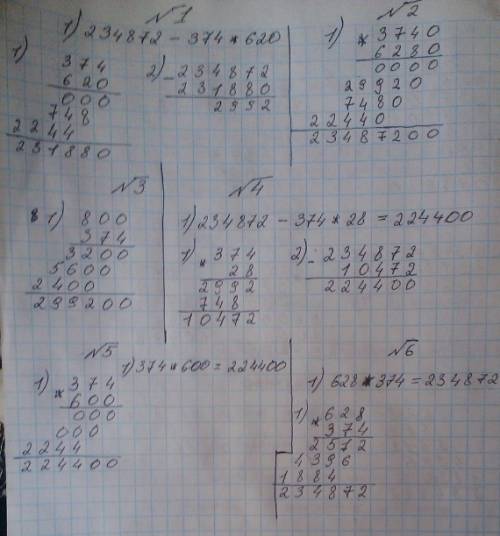 №1
1) 234872 - 374 * 620
1)
374
620
000
748
2244
231880
2) - 234872
231880
2992
№2
1) * 3740
6280
0000
29920
7480
22440
23487200
№3
8 1) 800
374
3200
5600
2400
299200
№4
1) 234872 - 374 * 28 = 224400
1) * 374
28
2992
748
10472
2) - 234872
10472
224400
№5
1) 374 * 600 = 224400
1) * 374
600
000
000
2244
224400
№6
1) 628 * 374 = 234872
1) * 628
374
2572
4396
1884
234872